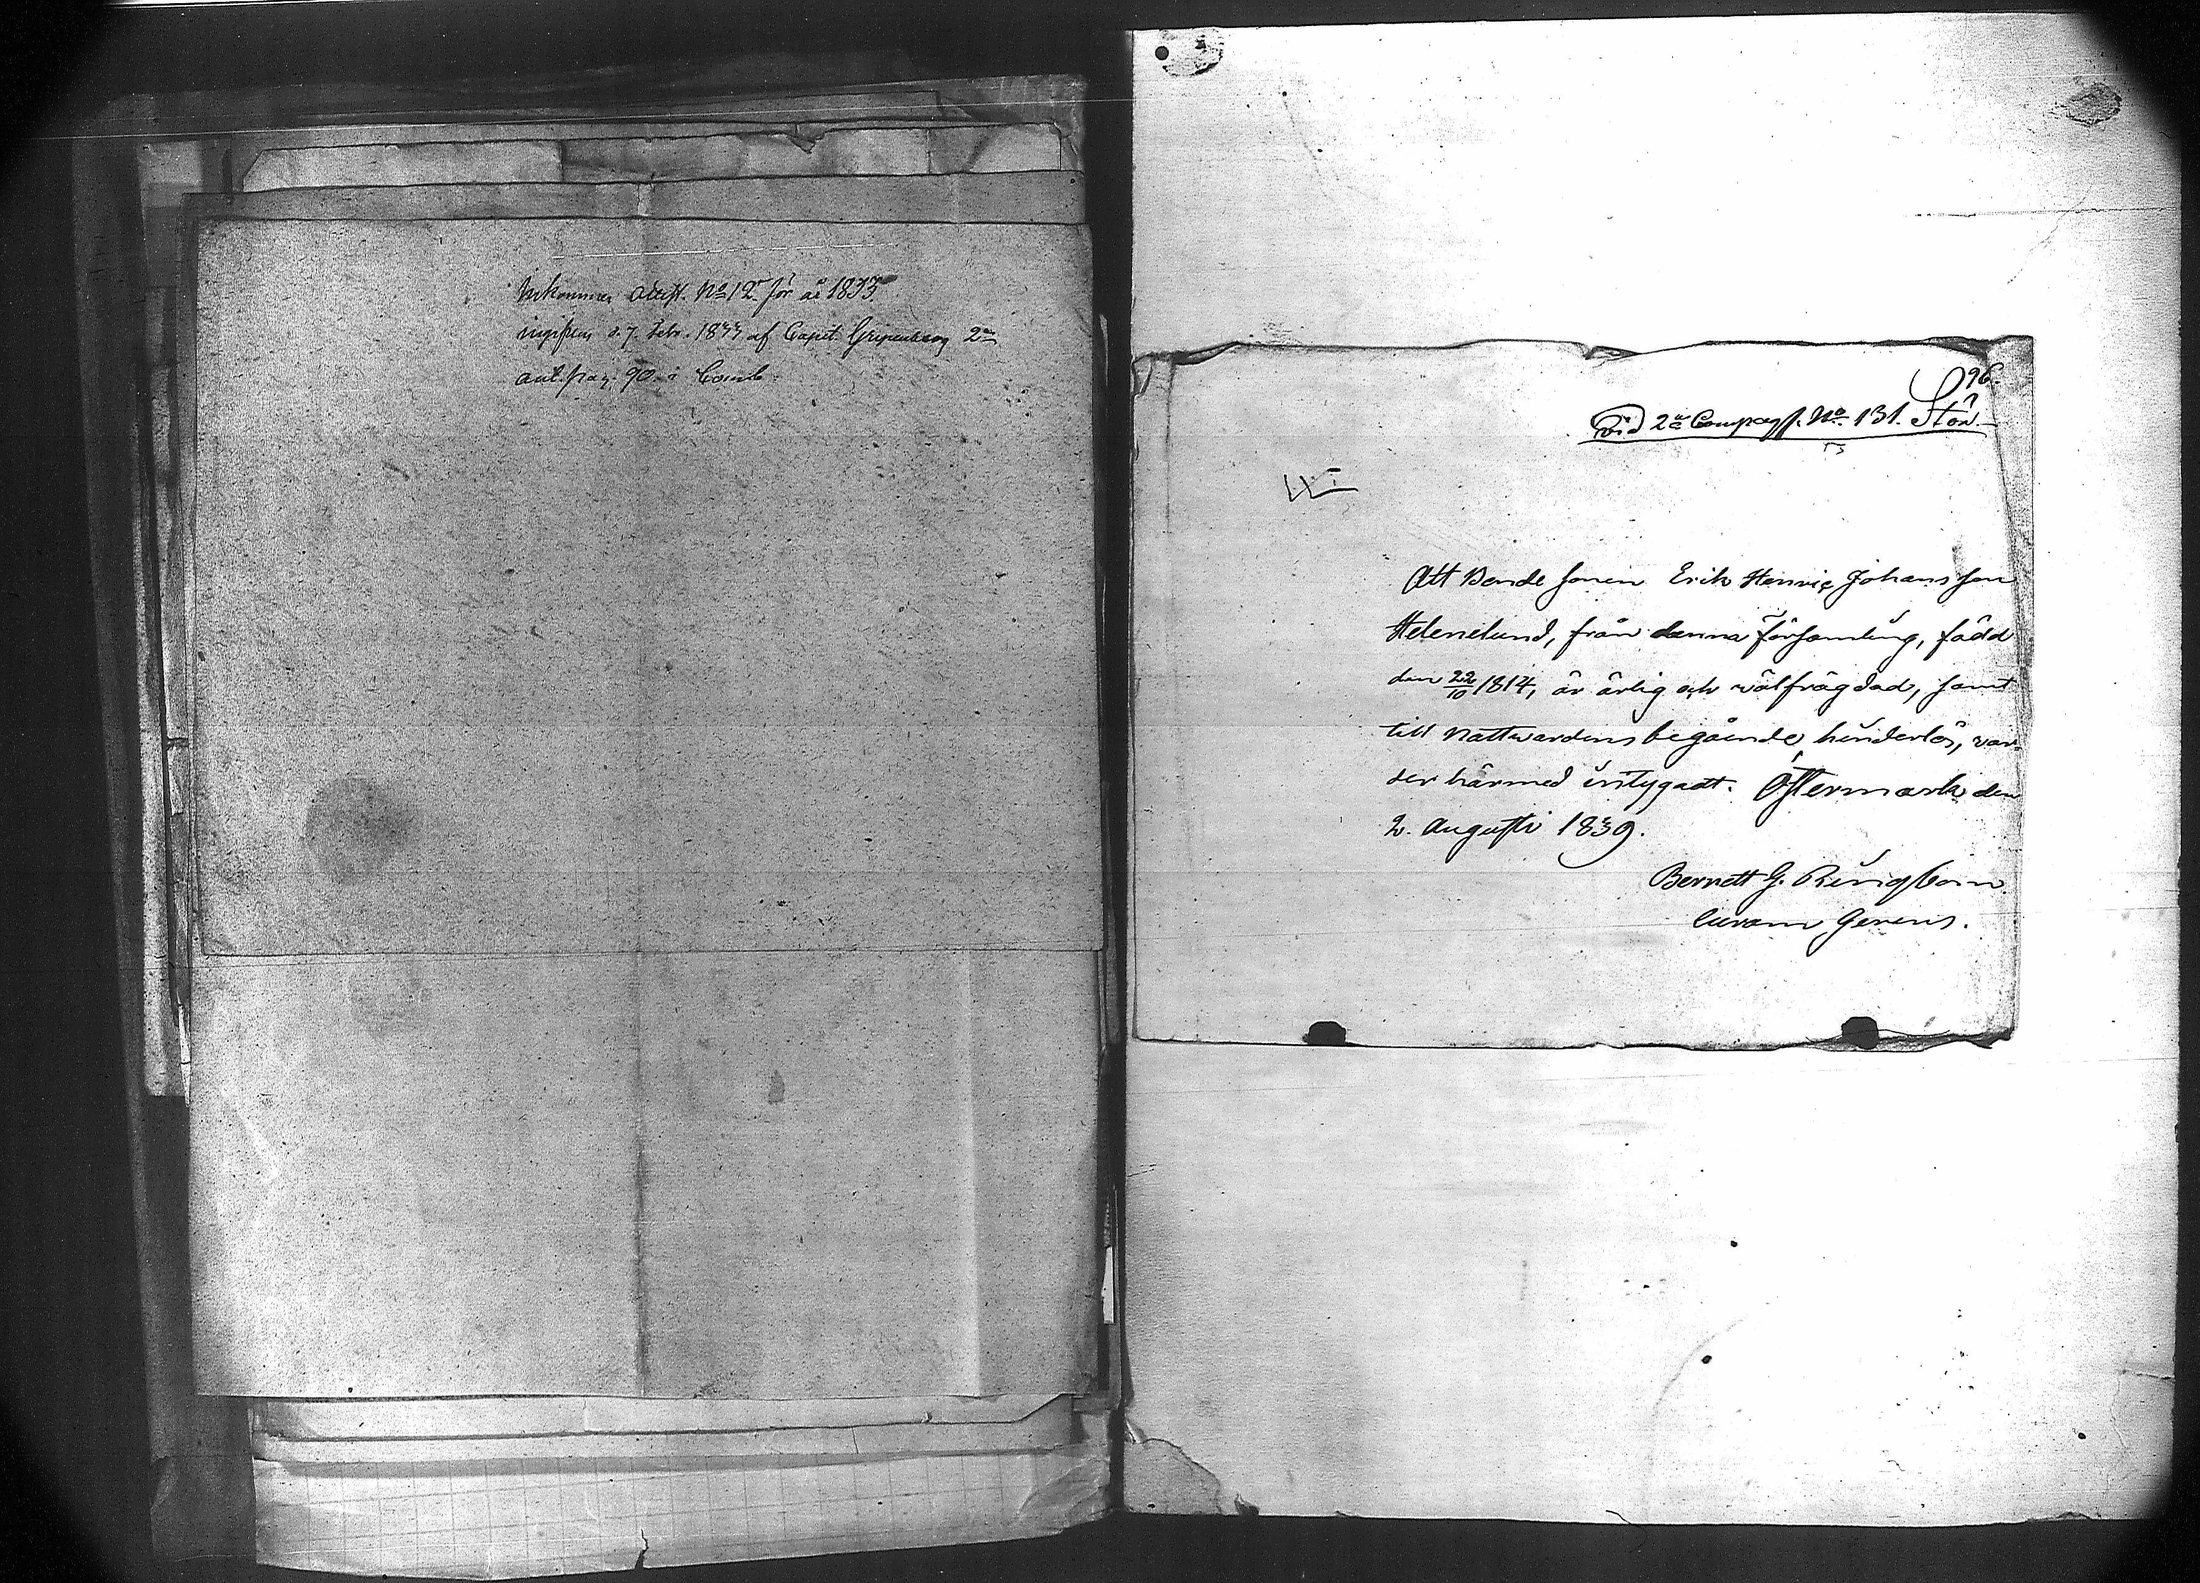 Inkommen attest. No 12 för år 1833
d. 7. Febr. 1833 af Capit. Gripenberg 2an
ant. pag. 90 i
96.
vid 2a Compag/. No. 131. Stön
Att Bonde sonen Erik Henric Johansson
Helenelund, från denna Församling, född
den 22/10 1814, är ärlig och välfrägdad, samt
till Nattwardens begående hinderlös, var-
der härmed intygadt. Östermark den
2. Augusti 1839.
Bernett G. Ringbom.
Curam Gerens.